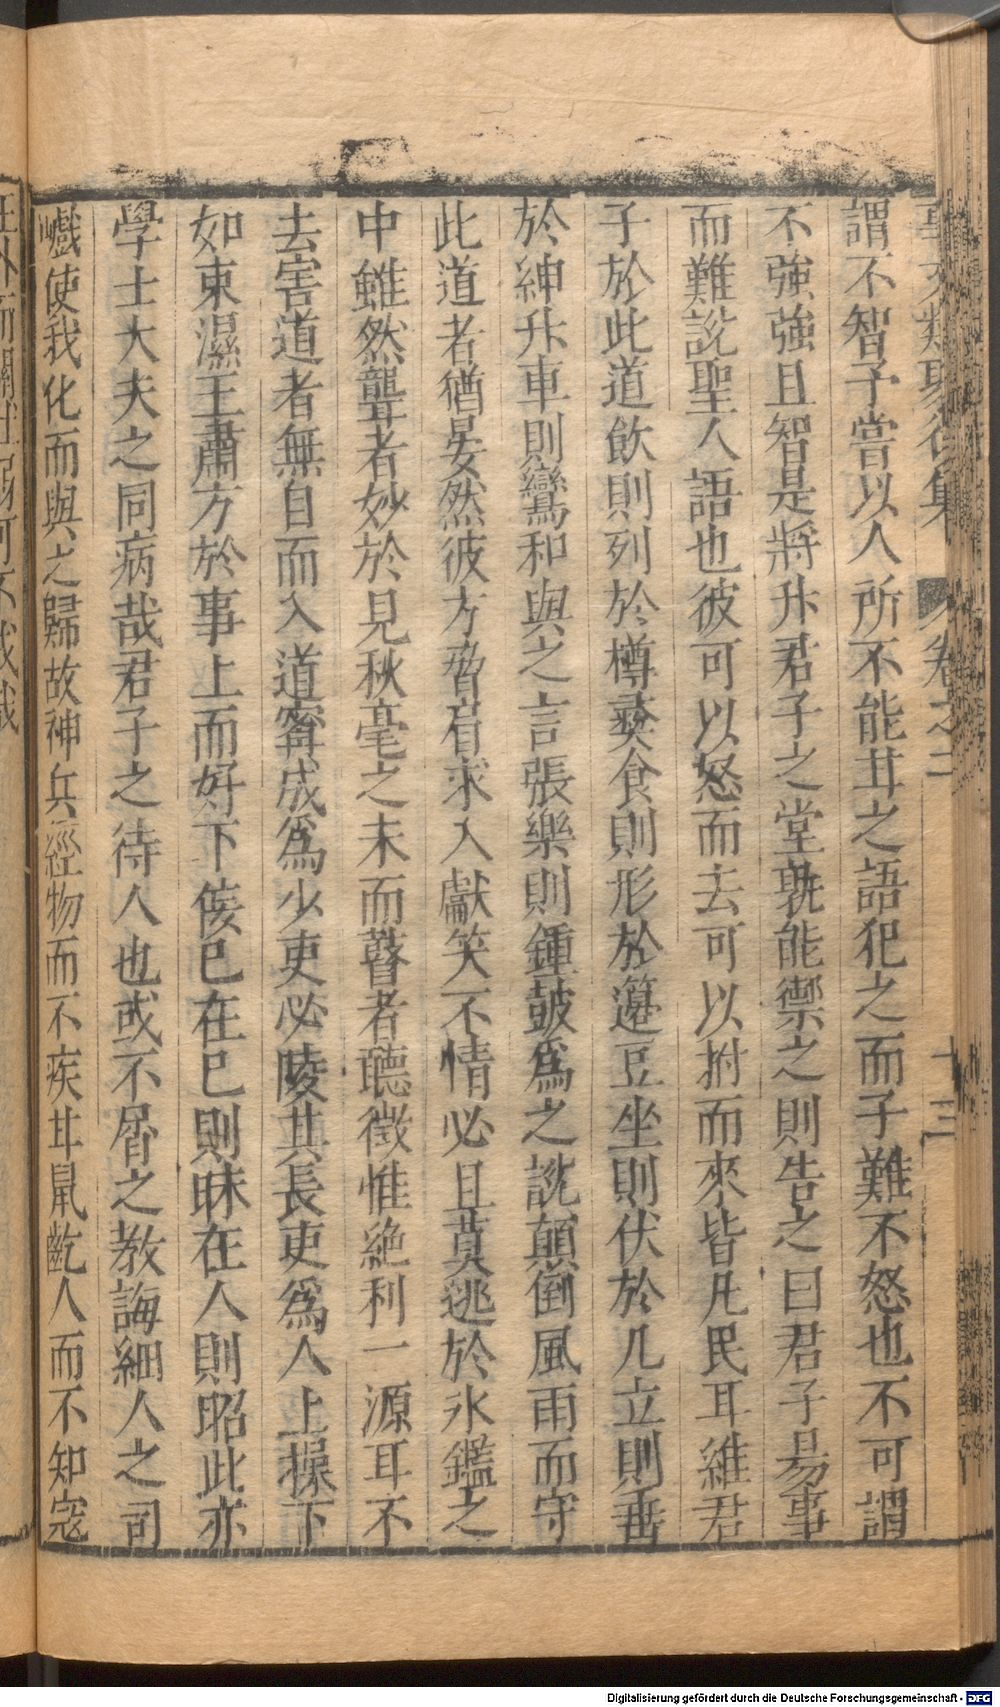 卷之二
十三
謂不智子嘗以人所不能甘之語犯之而子難不怒也不可謂
不強強且智是將升君子之堂孰能禦之則告之曰君子易事
而難說聖人語也彼可以怒而去可以拊而來皆凡民耳維君
子於此道飲則列於樽彝食則形於籩豆坐則伏於几立則垂
於紳升車則鸞和與之言張樂則鍾鼓爲之說顛倒風雨而守
此道者猶晏然彼方脅肩求入獻笑不情必且莫逃於氷鑑之
中雖然聾者妙於見秋毫之末而瞽者聽微惟絕利一源耳不
去害道者無自而入道寗成爲少吏必陵其長吏爲人上操下
如束濕王肅方於事上而好下佞已在已則昧在人則昭此亦
學士大夫之同病哉君子之待人也或不屑之教誨細人之司
巇使我化而與之歸故神兵經物而不疾甘鼠齕人而不知寇
Digitalisierung gefördert durch die Deutsche Forschungsgemeinschaft - DFG